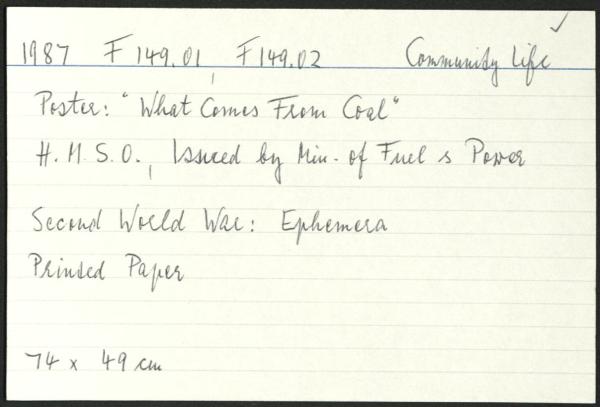 1987 F 149.01, F 149.02 Community Life
Poster: "What Comes From Coal"
H.M.S.O., Issued by Min. of Fuel & Power
Second World War: Ephemera
Printed Paper
74 x 49 cm